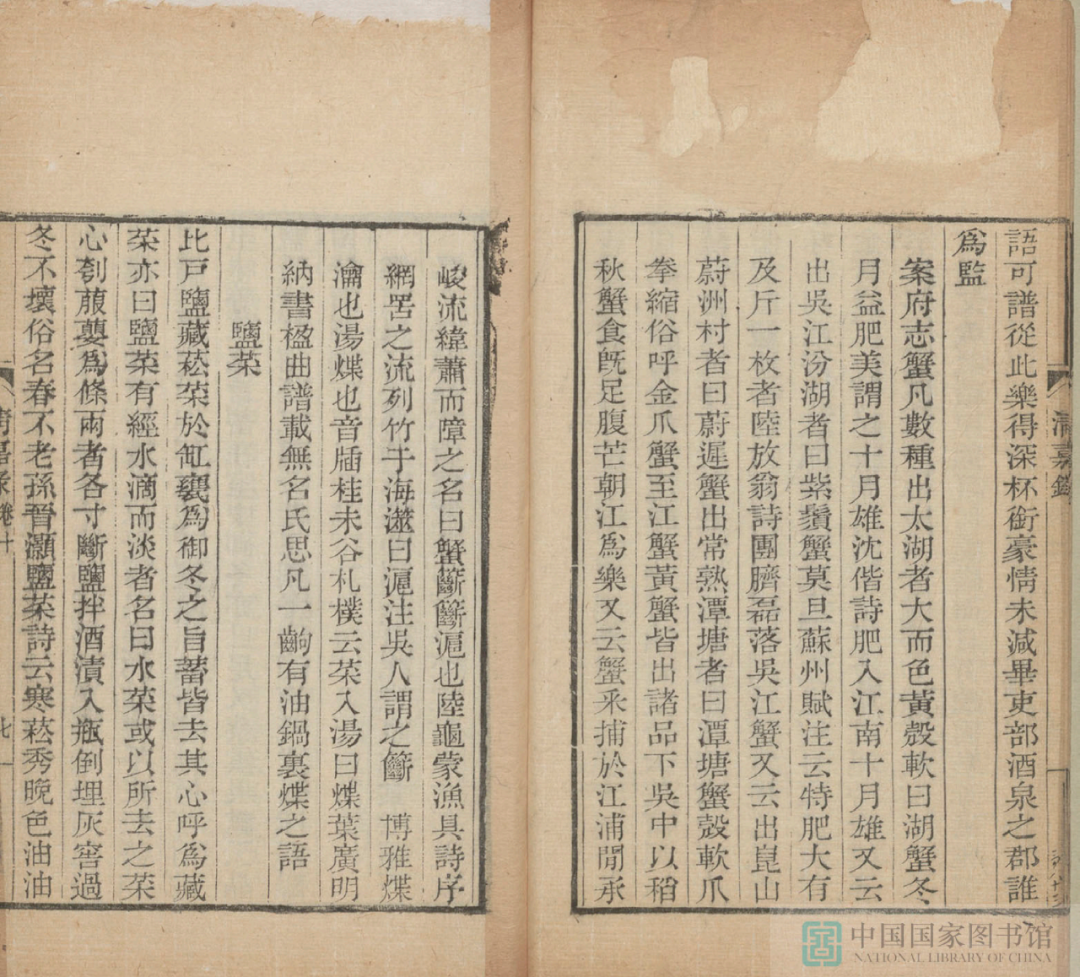 語可譜從此樂得深杯銜豪情未減畢吏部酒泉之郡誰
爲監
案府志蟹凡數種出太湖者大而色黃殼軟曰湖蟹冬
月益肥美謂之十月雄沈偕詩肥入江南十月雄又云
出吳江汾湖者曰紫鬚蟹莫旦蘇州賦注云特肥大有
及斤一枚者陸放翁詩團臍磊落吳江蟹又云出崑山
蔚洲村者曰蔚遲蟹出常熟潭塘者曰潭塘蟹殼軟爪
拳縮俗呼金爪蟹至江蟹黃蟹皆出諸品下吳中以稻
秋蟹食旣足腹芒朝江爲樂又云蟹釆捕於江浦間承
峻流緯蕭而障之名曰蟹籪籪滬也陸龜蒙漁具詩序
網罟之流列竹于海澨曰滬注吳人謂之籪 博雅煠
瀹也湯煠也音牐桂未谷札樸云菜入湯曰煠葉廣明
納書楹曲譜載無名氏思凡一齣有油鍋裏煠之語
鹽菜
比戸鹽藏菘菜於缸甕爲御冬之旨蓄皆去其心呼爲藏
菜亦曰鹽菜有經水滴而淡者名曰水菜或以所去之菜
心刳菔蔞爲條兩者各寸斷鹽拌酒漬入瓶倒埋灰窖過
冬不壞俗名春不老孫晉灝鹽菜詩云寒菘秀晚色油油
清嘉錄
清嘉錄卷十
七
中国国家图书馆
NATIONAL LIBRARY OF CHINA